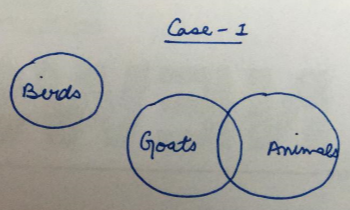 Case - I
Birds
Goats
Animals